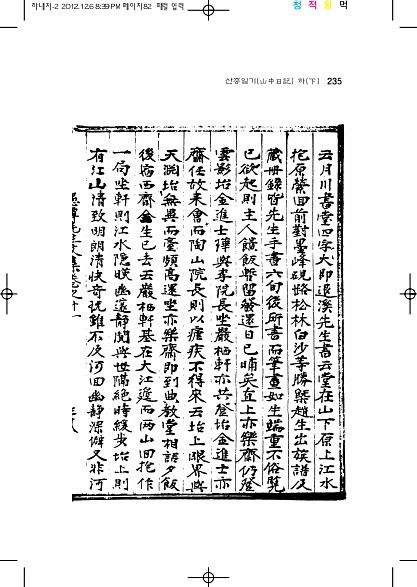 하네지-2 2012.12.6 8:39 PM 페이지82 패럴 입력
청 적 황 먹
산중일기(山中日記) 하(下) 235
云月川書堂四字大卽退溪先生書云堂在山下原上江水
抱原縈回前對墨峰硯 松林白沙等勝槩趙生出族譜及
藏冊錄皆先生手書六旬後所書而筆畫如生端重不俗覽
已欲起則主人饋飯 還日已晡矣直上亦樂齋仍登
雲影坮金進士 與李院長坐巖栖軒亦共登坮金進士亦
齋任故來會而陶山院長則以瘧疾不得來云坮上眼界與
天淵坮無異而臺頗高還坐亦樂齋卽到典敎堂相語夕飯
後宿西齋金生已去云巖栖軒基在大江邊而兩山回抱作
一局坐軒則江水隱暎幽邃靜閴與世隔絶時緩步坮上則
有江山淸致明朗淸快奇玩雖不及河回幽靜深僻又非河